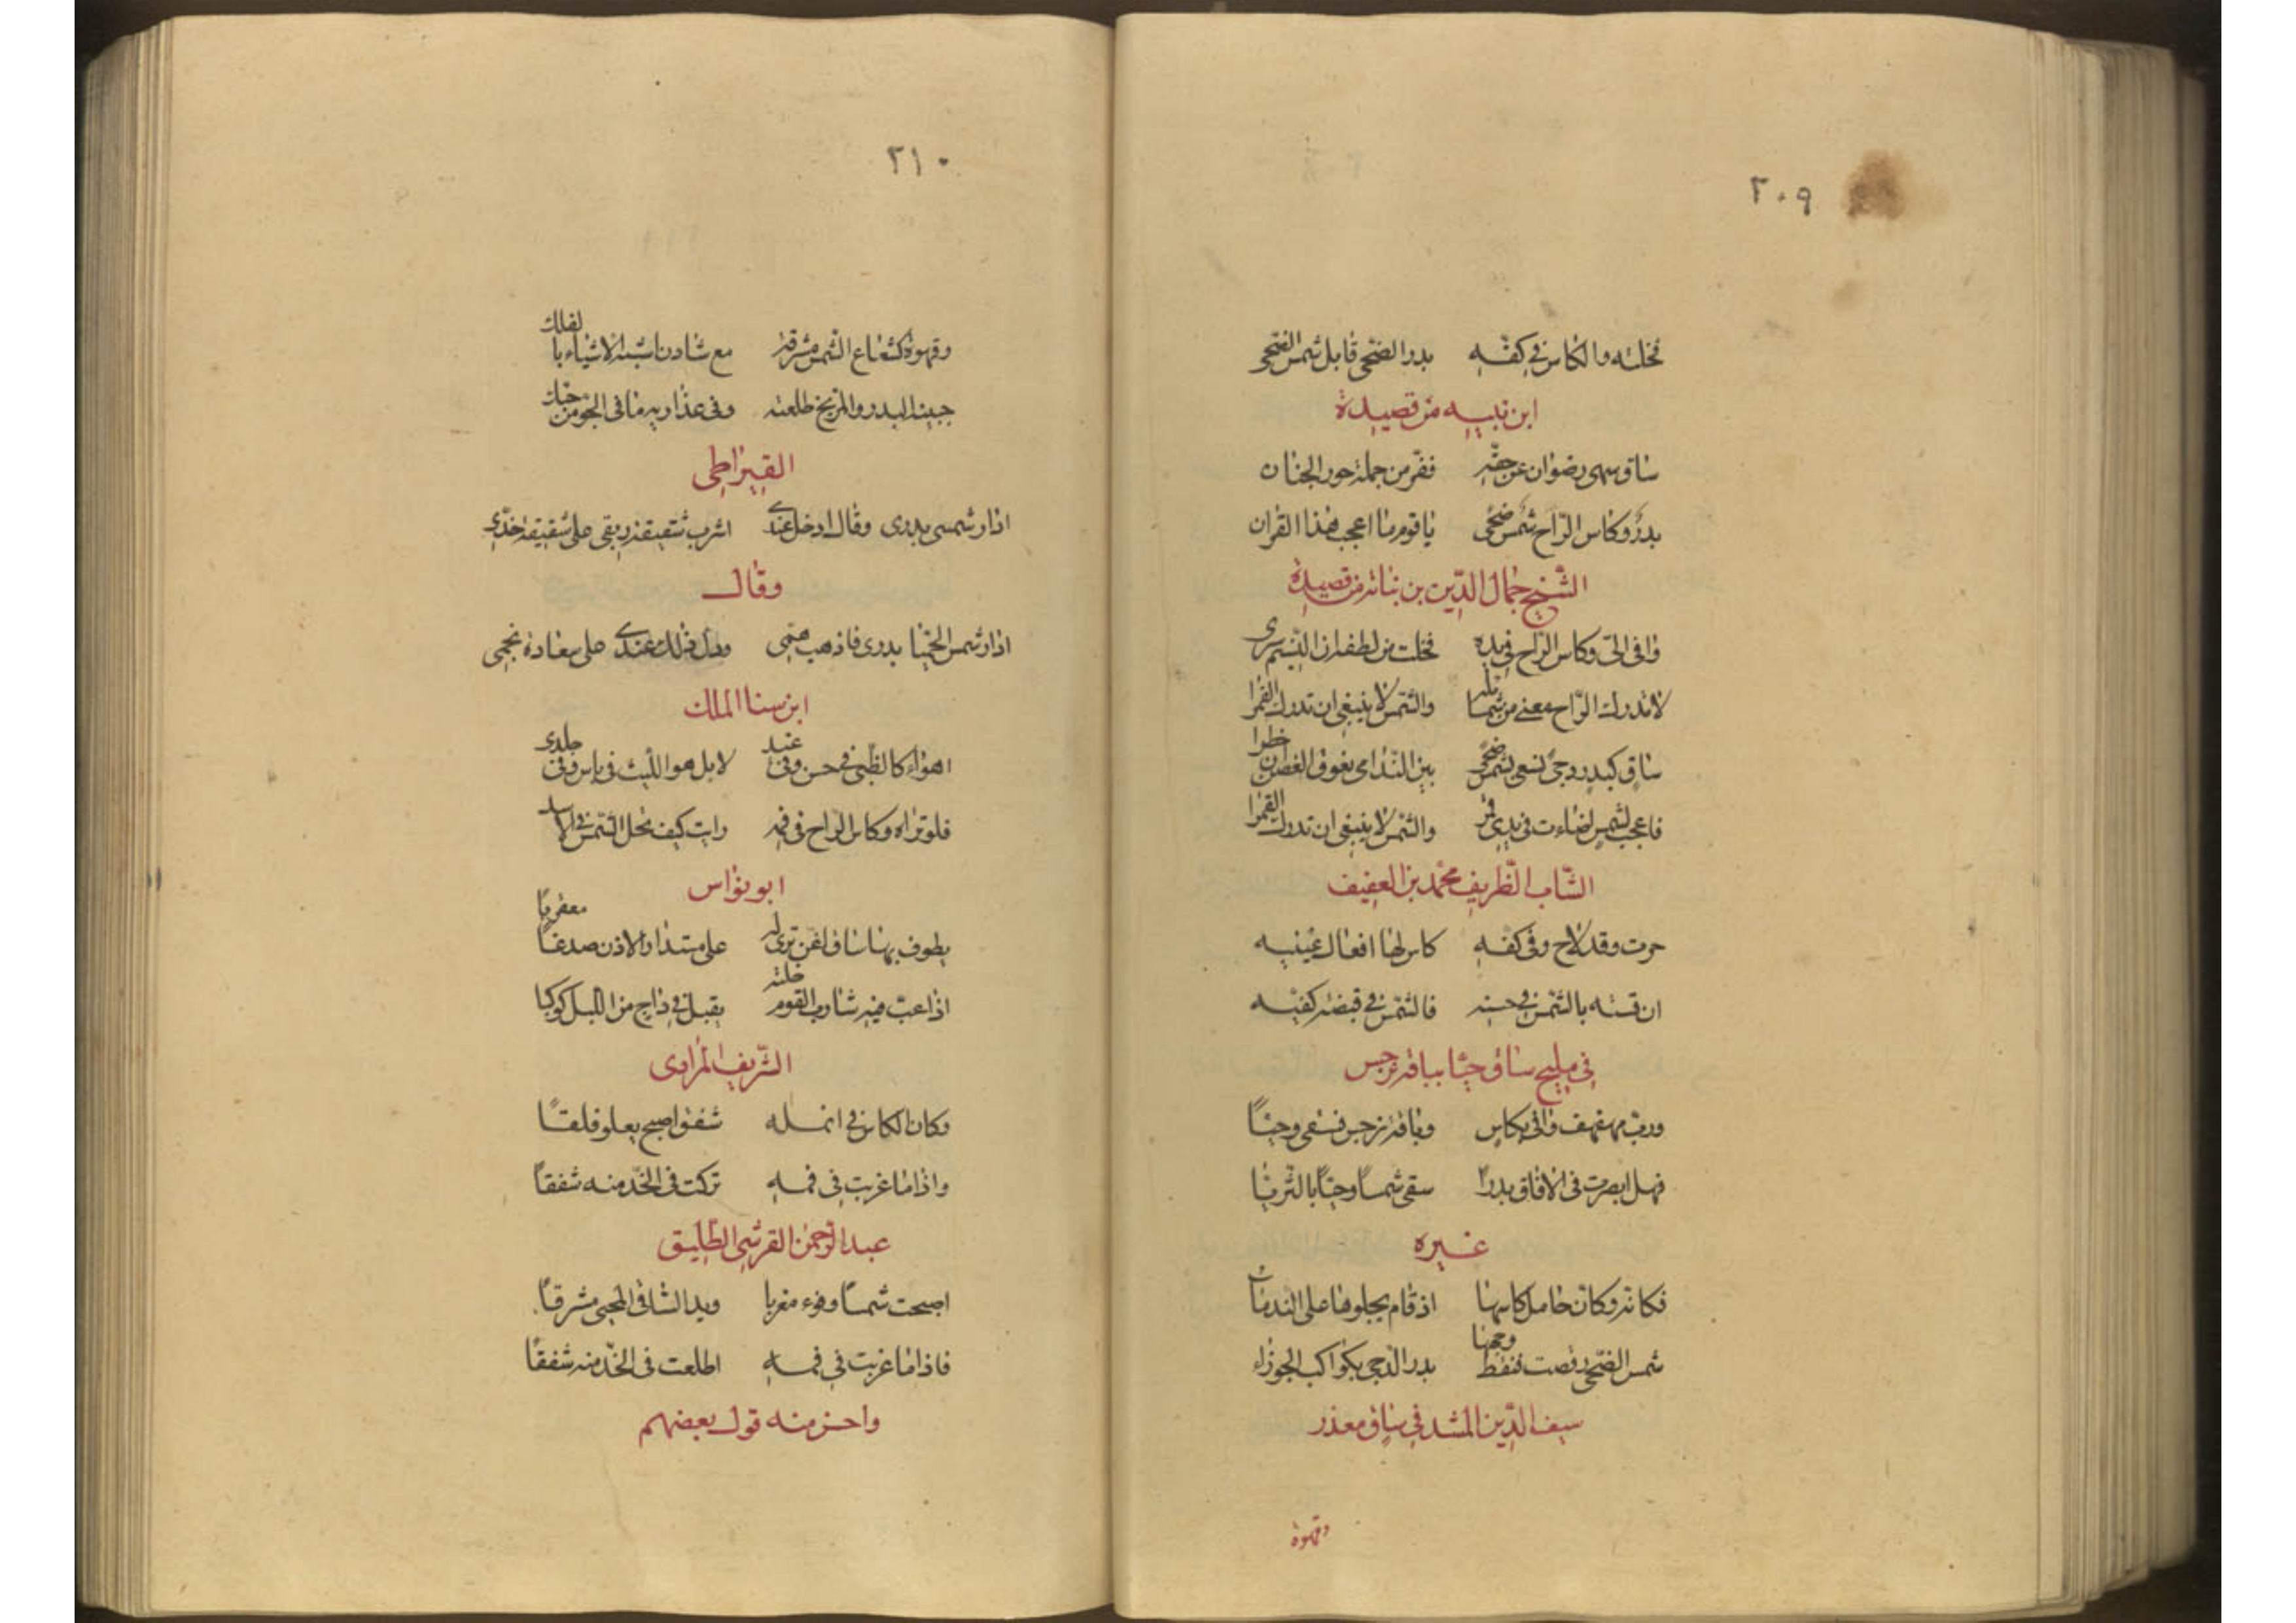 ٢٠٩
فخلته والكاس في كفّه بدر الضحى قابل شمس الضحى
ابن نبيه من قصيدة
ساق سهى رضوان عن حفّه ففرّ من جملة حور الجنان
بدرٌ وكاس الرّاح شمس ضحىً يا قوم ما اعجب هذا القران
الشّيخ جمال الدّين بن نباته من قصيدة
وافى اليّ وكاس الرّاح في يده فخلت من لطفه ان النّسيم سرى
لا تدرك الرّاح معنى من شمائله والشّمس لا ينبغي ان تدرك القمرا
ساق كبدر دجىً تسعى بشمس ضحىً بين النّدامى يفوق الغصن ان خطرا
فاعجب لشمس اضاءت في يدي قمر والشّمس لا ينبغي ان تدرك القمرا
الشّاب الظّريف محمّد بن العفيف
حرت وقد لاح وفي كفه كاس لها افعال عينيه
ان قسته بالشّمس في حسنه فالشّمس في قبضة كفيّه
في مليح ساق حيّا بباقة نرجس
وربّ مهفهف وافى بكاس وباقة نرجس فسقى وحيّاً
فهل ابصرت في الافاق بدراً سقى شمساً وحيّاً بالثّريّا
غيره
فكانه وكانّ حامل كاسها اذ قام يجلوها على الندماء
شمس الضّحى رقصت فنقط وجهها بدر الدّجى بكواكب الجوزاء
سيف الدّين المشد في ساق معذر
وقهوة
٢١٠
وقهوة كشعاع الشّمس مشرقة مع شادن اشبه الاشياء بالفلك
جبينه البدر والمريخ طلعته وفي عذاريه ما في الجوّ من حبك
القيراطى
ادار شمسى بدرى وقال ادخل عندى اشرب شقيقة ريقى على شقيقة خدّى
وقال
ادار شمس الحميّا بدرى فاذهب همّى ودلّ ذلك عندى على سعادة نجمى
ابن سنا الملك
اهواه كالظّبى في حسن وفي غيد لا بل هو اللّيث في باس وفي جلدى
فلو تراه وكاس الرّاح في فمه رايت كيف تحل الشّمس في الاسد
ابو نواس
يطوف بها ساق اغن ترى له على مستدار الاذن صدغاً معقربا
اذا عبّ فيه شارب القوم خلته يقبل في داج من اللّيل كوكبا
الشّريف المرادى
وكان الكاس في انمله شفق اصبح يعلو فلقاً
واذا ما غربت في فمه تركت في الخّد منه شفقاً
عبد الرّحمن القرشي الطّليق
اصبحت شمساً وفوه مغربا ويد السّاقى المحيى مشرقاً
فاذا ما غربت في فمه اطلعت في الخّد منه شفقاً
واحسن منه قول بعضهم